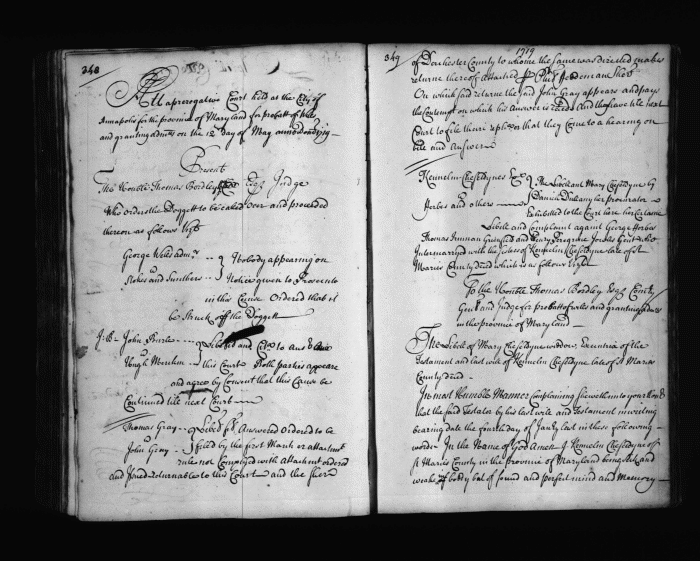 348
At a prerogative Court held at the City of
Annapolis for the province of Maryland for probatt of wills
and granting admts on the 12 day of May anno
Present
The Honble Thomas Bordley Esqr Judge
Who orders the Doggett to be called over and proceeded
thereon as follows Vizt
George Wells admr Nobody appearing on
Stokes and Smithers Notice given to Prosecute
in this Cause Ordered that it
be Struck off the Doggett
John and to Ans
Hugh this Court Both parties appeare
and agree by Consent that this Cause be
Continued till next Court
Thomas Gray Answered Ordered to be
John Gray filed by the first March or attachmt
rule not Complyed with Attachmt ordered
and Issued returnable to this Court and the Sherr
349
1719
of Dorchester County to whome the same was directed makes
returne thereof Attached Shr
On which said returne the said John Gray appears and pays
the Contempt on which his Answer is and have till next
Court to file their that they Come to a hearing on
bill and Answer
Kennelm Cheseldynes Exx The Libellant Mary Cheseldyne by
Forbes and others Daniel Dulany her procurator
Exhibitted to the Court here her Certaine
Libell and Complaint against George Forbes
Thomas Truman Greenfield and Peregrine Jordes Gent
Intermarryed with the sisters of Kennelm Cheseldyne late of St
Maries County decd which is as follows Vizt
To the Honble Thomas Bordley Esqr Comry
Genll and Judge for probatt of wills and granting admrs
in the province of Maryland
The Libell of Mary Cheseldyne widdow, Executrix of the
Testament and last will of Kennelm Cheseldyne late of St Maries
County decd
In most Humble Manner Complaining sheweth unto your Honr
that the said Testator by his last will and Testament in writeing
bearing date the fourth day of last in these following
words In the Name of God Amen I Kennelm Cheseldyne of
St Maries County in the province of Maryland being sick and
weake of body but of sound and perfect mind and Memory